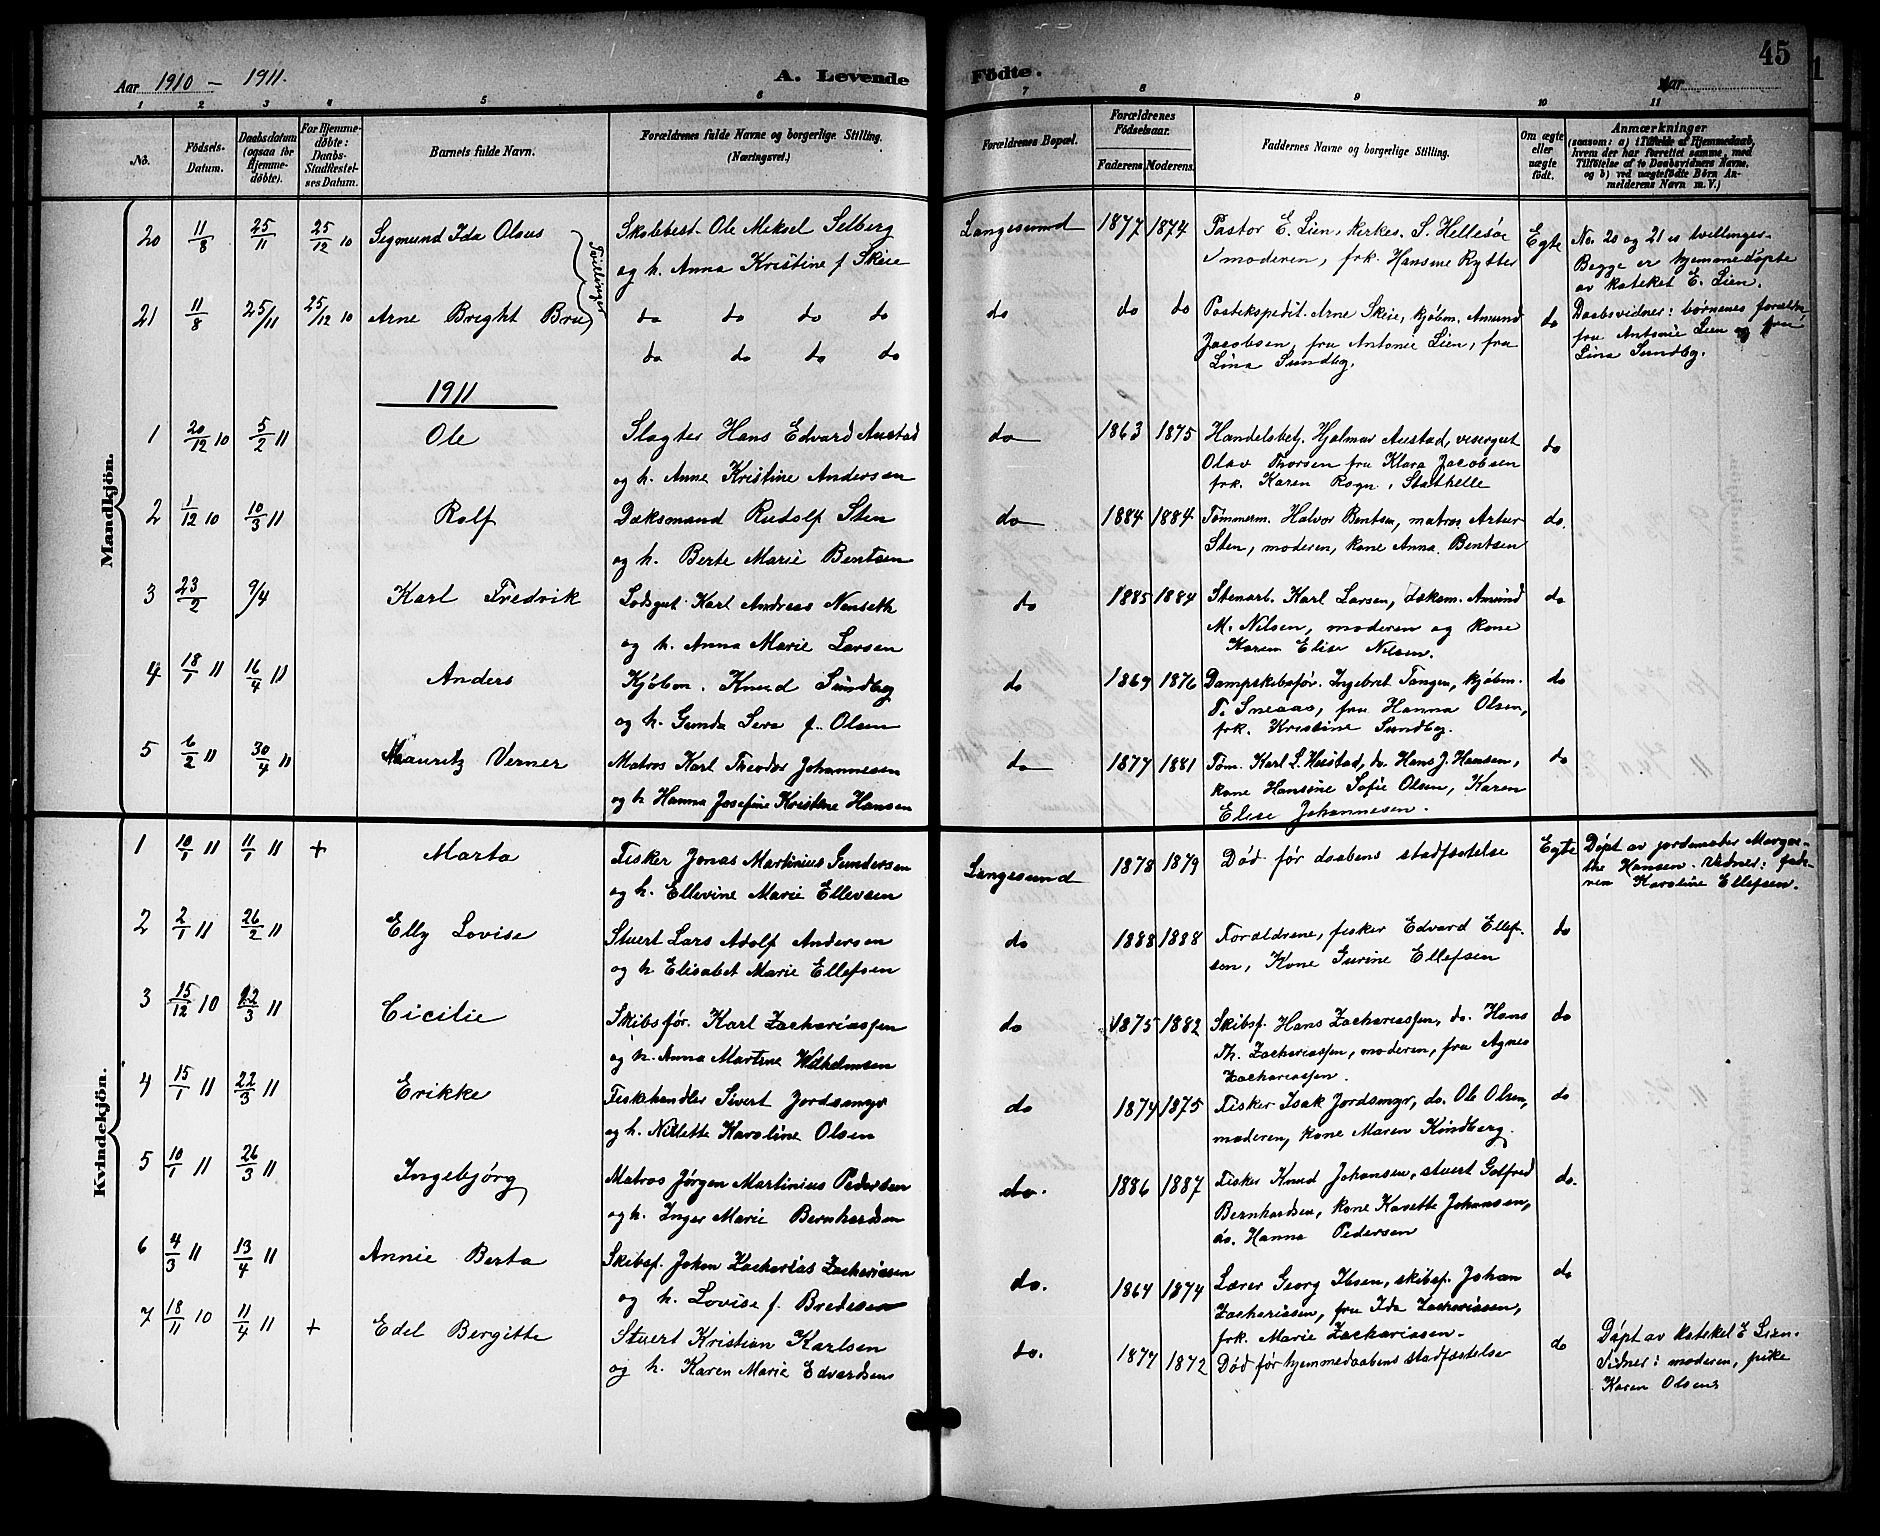 45
Aar 1910 – 1911.
A. Levende Fødte.
Aar
1 2 3 4 5 6 7 8 9 10 11
No.
Fødsels-Datum.
Daabsdatum (ogsaa for Hjemme-døbte).
For Hjemme-døbte: Daabs-Stadfæstel-ses Datum.
Barnets fulde Navn.
Forældrenes fulde Navne og borgerlige Stilling. (Næringsvei.)
Forældrenes Bopæl.
Forældrenes Fødselsaar.
Faderens. Moderens.
Faddernes Navne og borgerlige Stilling.
Om ægte eller uægte født.
Anmærkninger
(saasom: a) i Tilfælde af Hjemmedaab, hvem der har forrettet samme, med Tilføielse af to Daabsvidners Navne, og b) ved uægtefødte Børn An-melderens Navn m. V.)
Mandkjøn.
20 11/8 25/11 25/12 10 Sigmund Ida Olaus Skolebest. Ole Mikael Selberg Langesund 1877 1874 Pastor E. Lien, kirkes. S. Hellesøe Egte No. 20 og 21 er tvillinger.
og h. Anna Kristine f Skeie moderen, frk. Hansine Rytter Begge er hjemmedøpte
av kateket E. Lien.
Tvillinger
21 11/8 25/11 25/12 10 Arne Bright Bru do do do do do do do Postekspedit. Arne Skeie, kjøbm. Amund do Daabsvidner: børnenes forældre
do do do do Jacobsen, fru Antonie Lien, fru fru Antonie Lien og fru
Lina Sundby. Lina Sundby.
1911
1 20/12 10 5/2 11 Ole Slagter Hans Edvard Austad do 1863 1875 Handelsbetj. Hjalmar Austad, visergut do
og h. Anne Kristine Andersen Olav Thorsen fru Klara Jacobsen
frk. Karen Rogn, Stathelle
2 1/12 10 10/3 11 Rolf Dæksmand Rudolf Sten do 1884 1884 Tømmerm. Halvor Bentsen, matros Artur do.
og h. Berte Marie Bentsen Sten, moderen, kone Anna Bentsen
3 23/2 9/4 Karl Fredrik Losgut Karl Andreas Nenseth do 1885 1884 Stenarb. Karl Larsen, dæksm. Amund do
og h. Anna Marie Larsen M. Nilsen, moderen og kone
Karen Elise Nilsen.
4 18/1 11 16/4 11 Anders Kjøbm. Knud Sundby do 1869 1876 Dampskibsfør. Ingebret Tangen, kjøbm. do
og h. Gunda Sera f. Olsen T. Sneaas, fru Hanna Olsen,
frk. Kristine Sundby.
5 6/2 11 30/4 11 Mauritz Verner Matros Karl Theodor Johannesen do 1877 1881 Tøm. Karl L. Hustad, do. Hans J. Hansen, do
og h Hanna Josefine Kristine Hansen kone Hansine Sofie Olsen, Karen
Elise Johannesen.
Kvindekjøn.
1 10/1 11 11/1 11 + Marta Fisker Jonas Martinius Gundersen Langesund 1878 1879 Død før daabens stadfæstelse Egte Døpt av jordemoder Margre-
og h. Ellevine Marie Ellevsen the Hansen. Vidner: fad-
ren Karoline Ellefsen.
2 2/1 11 26/2 11 Elly Lovise Stuert Lars Adolf Andersen do 1888 1888 Forældrene, fisker Edvard Ellef- do
og h Elisabet Marie Ellefsen sen, Kone Gurine Ellefsen
3 15/12 10 22/3 11 Cicilie Skibsfør. Karl Zachariassen do 1875 1882 Skibsf. Hans Zachariassen, do. Hans do
og h. Anna Martine Wilhelmsen Th. Zachariassen, moderen, fru Agnes
Zachariassen.
4 15/1 11 22/3 11 Erikke Fiskehandler Sivert Jordsmyr do 1874 1875 Fisker Isak Jordsmyr, do. Ole Olsen, do
og h. Nillette Karoline Olsen moderen, kone Maren Kindberg.
5 10/1 11 26/3 11 Ingebjørg Matros Jørgen Martinius Pedersen do. 1886 1887 Fisker Knud Johansen, stuert Gotfred do.
og h. Inger Marie Bernhardsen Bernhardsen, kone Karette Johansen,
do. Hanna Pedersen
6 4/3 11 13/4 11 Annie Berta Skibsf. Johan Zacharias Zachariasen do. 1864 1874 Lærer Georg Ibsen, skibsf. Johan do
og h. Lovise f. Bredesen Zachariasen, fru Ida Zachariasen,
frk. Marie Zachariasen.
7 18/11 10 11/4 11 + Edel Bergitte Stuert Kristian Karlsen do. 1877 1872 Død før hjemmedaabens stadfæstelse do Døpt av kateket E Lien.
og h. Karen Marie Edvardsen Vidner: moderen, pike
Karen Olsen